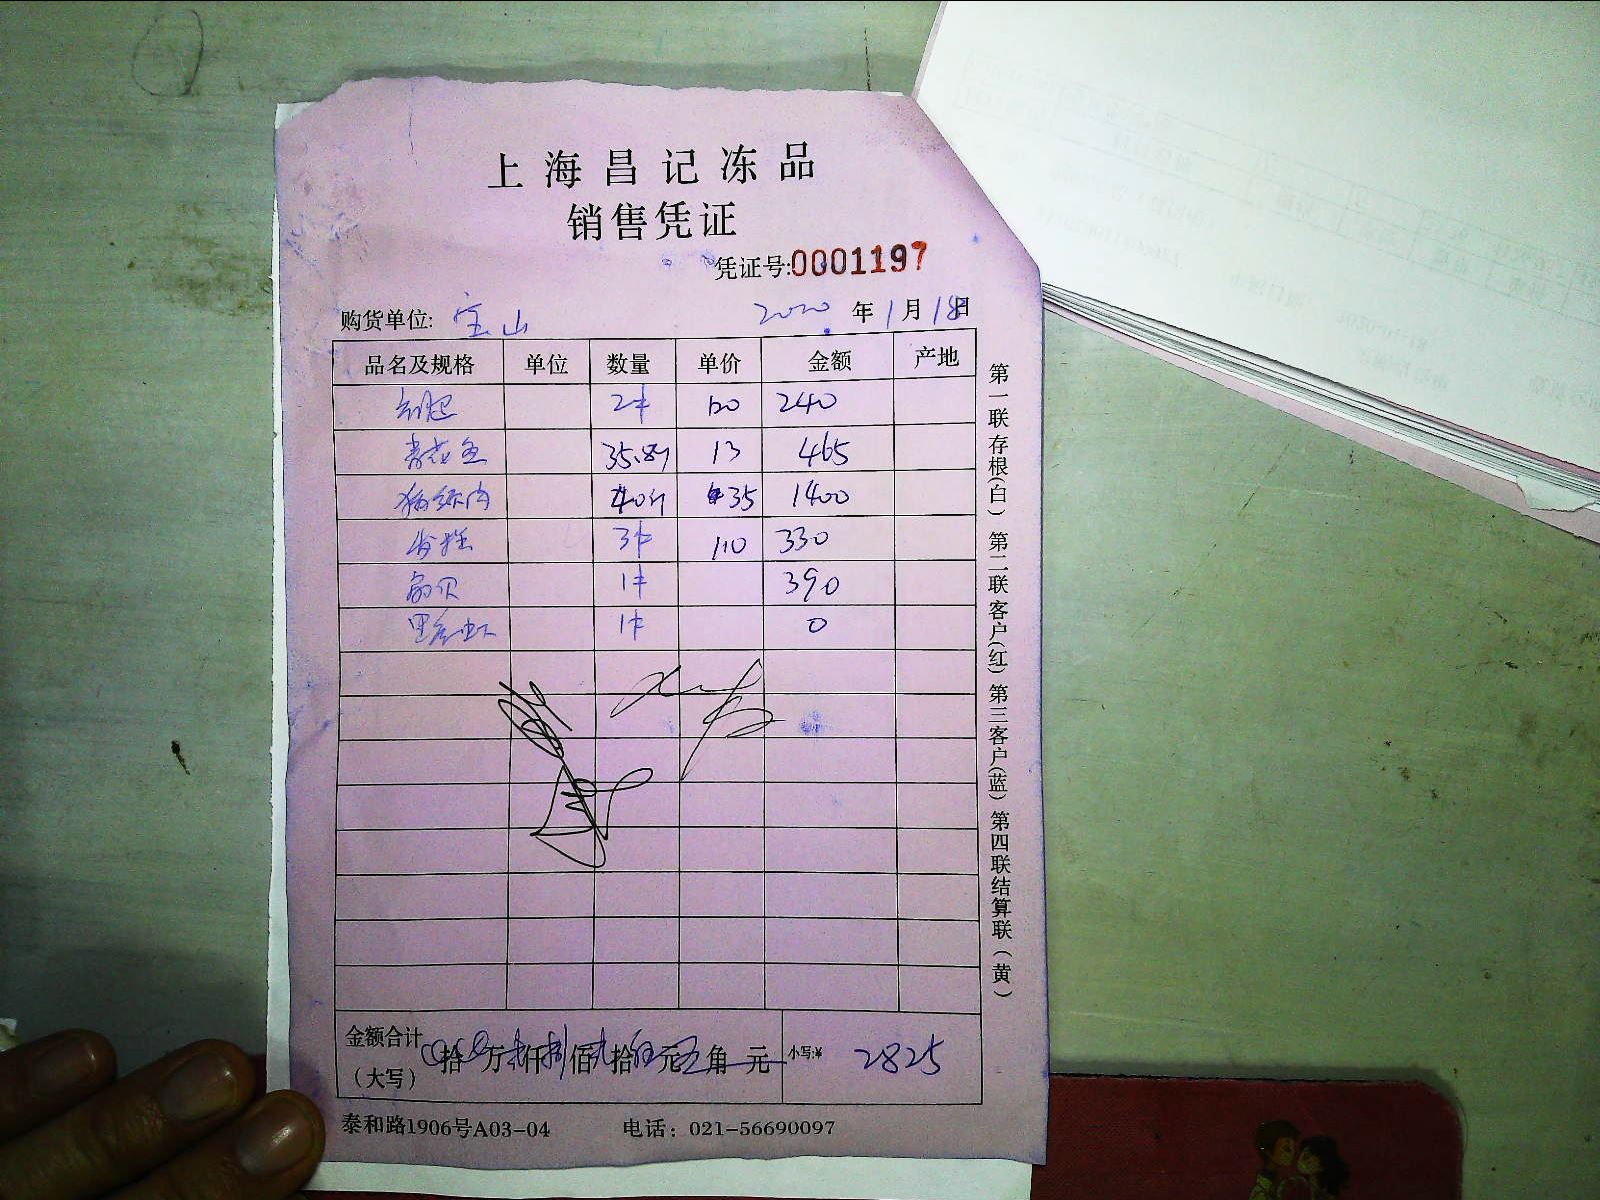 上海昌记冻品
销售凭证
凭证号:0001197
购货单位: 宝山 2020年1月18日
品名及规格 单位 数量 单价 金额 产地
2件 120 240
青花鱼 35.8斤 13 465
40斤 35 1400
3件 110 330
扇贝 1件 390
黑虎虾 1件 0
金额合计
(大写) 拾 万 仟 佰 拾 元 角 元 小写:¥ 2825
泰和路1906号A03-04 电话: 021-56690097
第一联存根(白) 第二联客户(红) 第三客户(蓝) 第四联结算联(黄)